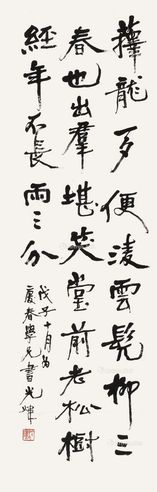 籜龍一夕便淩雲髡柳三
春也出羣堪笑堂前老松樹
經年不長兩三分
戊子十月為
慶春學兄書光煒